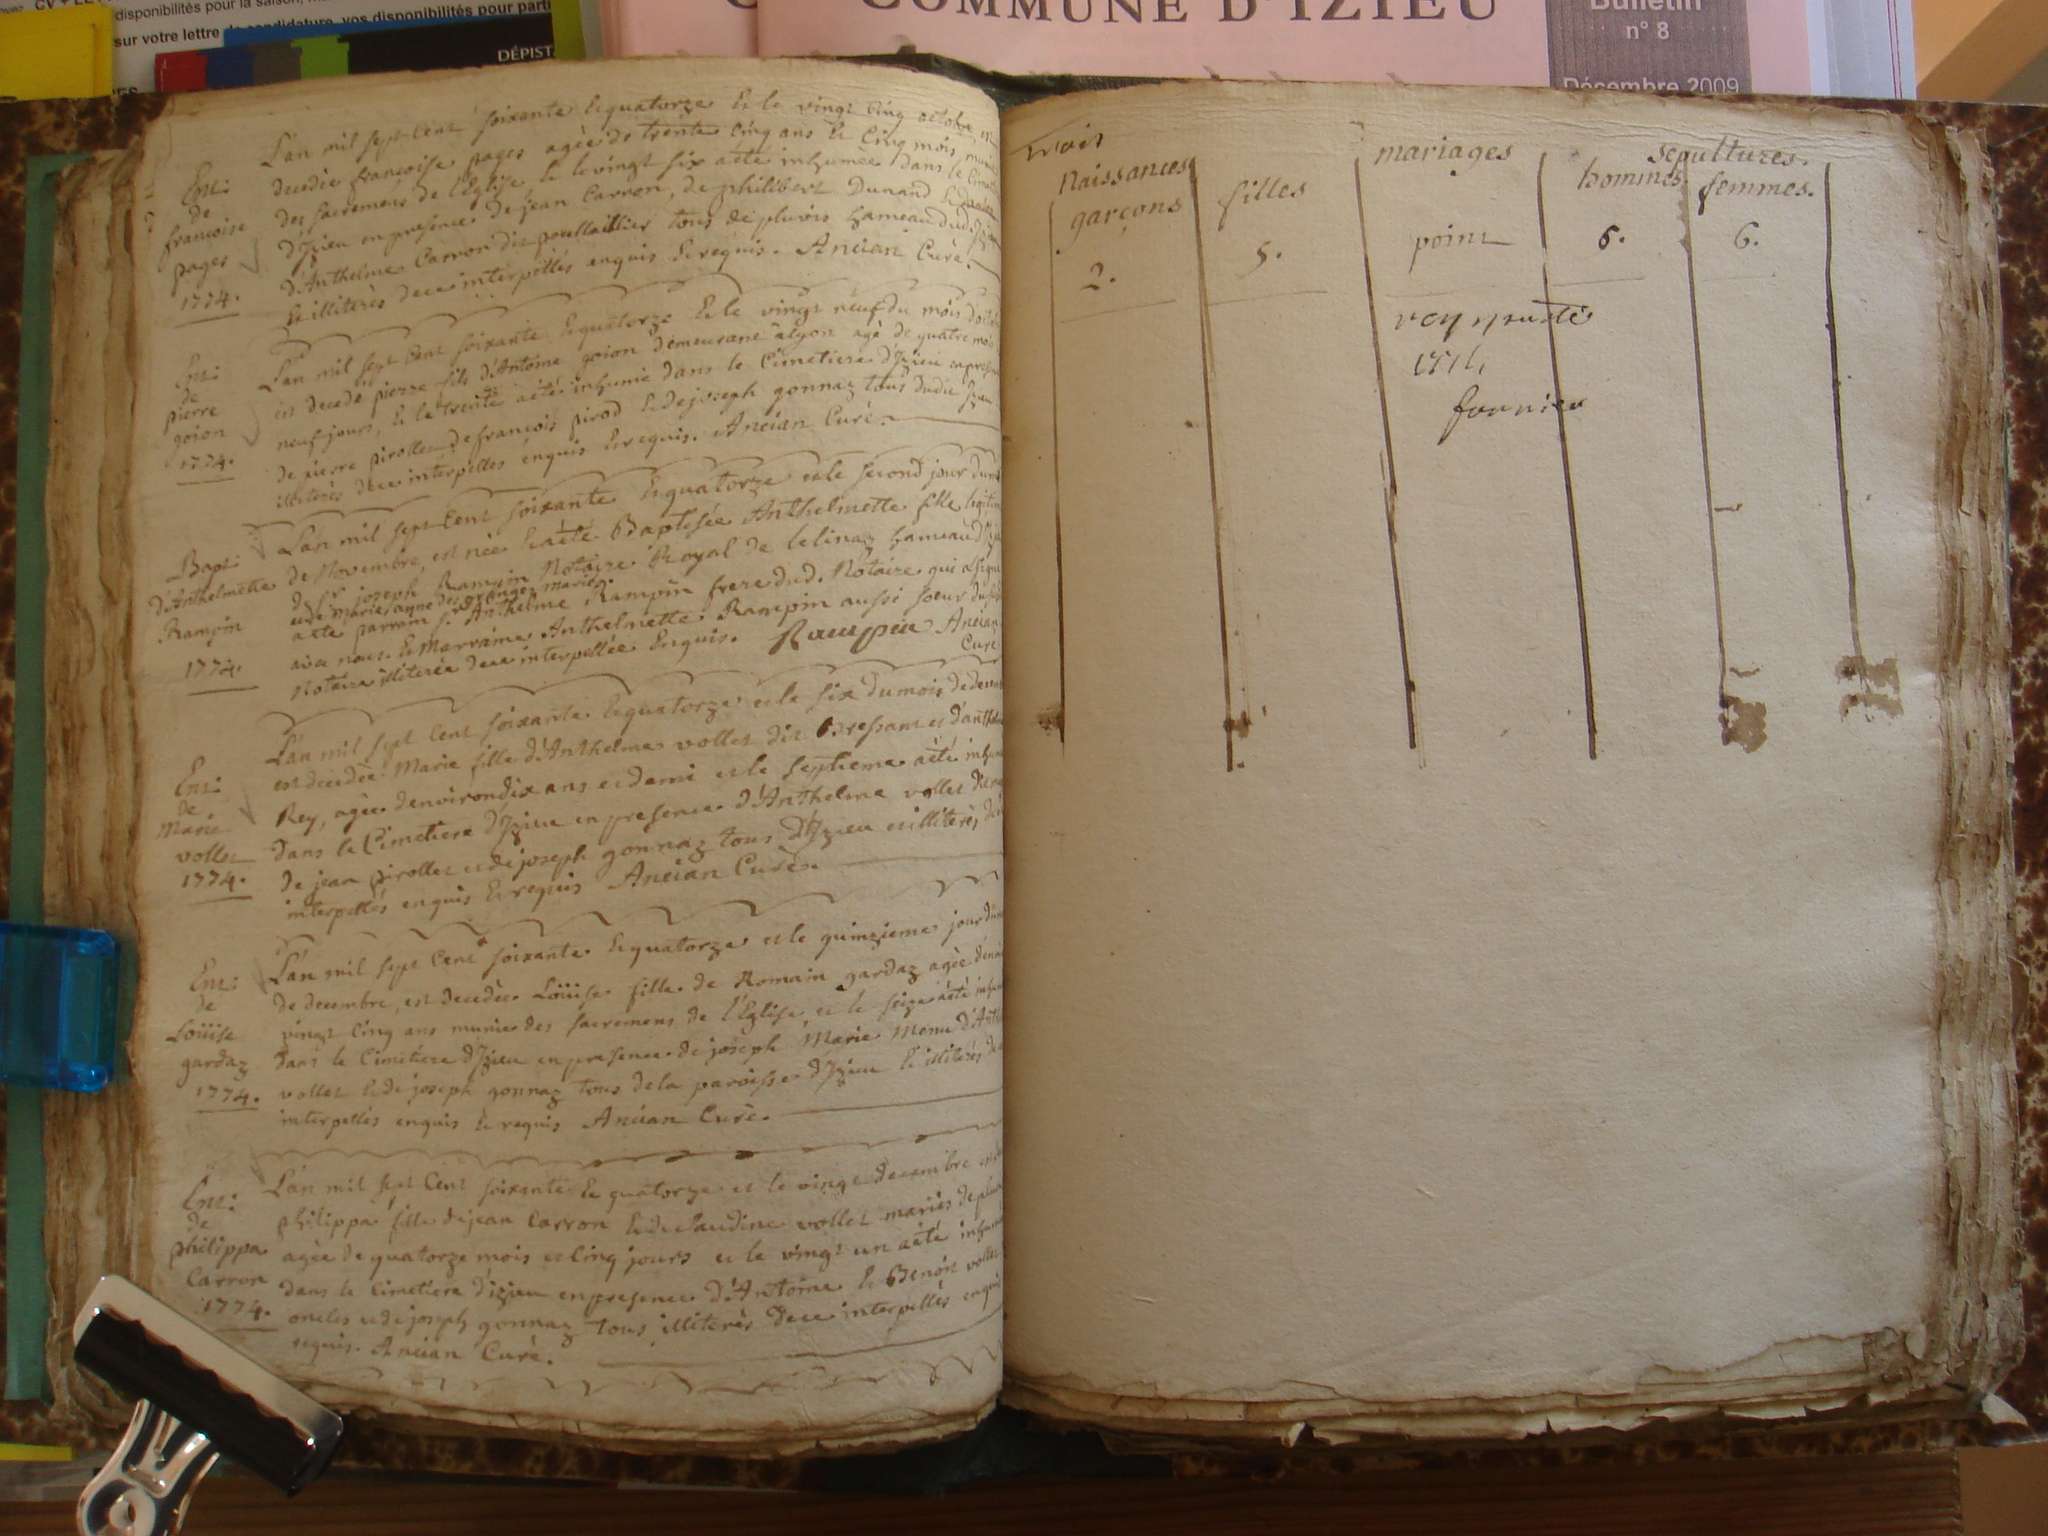 disponibilités pour la saison,
sur votre lettre de candidature, vos disponibilités pour parti
DÉPIST
COMMUNE D'IZIEU
Bulletin
n° 8
Décembre 2009
Ent:
de
francoise
pages
1774.
L'an mil sept Cent soixante & quatorze & le vingt Cinq octobre est
decedée francoise pages agèe de trente Cinq ans & Cinq mois munie
des sacremens de l'Eglise, & le vingt six aété inhumée dans le Cimetiere
d'Izieu en presence de jean Carron, de philibert Dunand &
d'Anthelme Carron dit poullaillier tous de plurois hameau dud. Izieu
& illiterès de ce interpellés enquis & requis. Ancian Curè.
Ent:
de
pierre
goion
1774.
L'an mil sept Cent soixante & quatorze & le vingt neuf du mois d'octobre
est decedé pierre fils d'Antoine goion demeurant a lyon agé de quatre mois
neuf jours, & le trente aété inhumé dans le Cimetiere d'Izieu en presence
de pierre pirollet de francois pirod & de joseph gonnaz tous dudit Izieu
illiterès de ce interpellés enquis & requis. Ancian Curè.
Bapt:
d'Anthelmette
Rampin
1774.
L'an mil sept Cent soixante & quatorze et le second jour du mois
de Novembre, est née & aété Baptisée Anthelmette fille legitime
de sr joseph Rampin Notaire Royal de lelinaz hameau d'Izieu
et de marie anne des granges mariés.
aété parrain sr Anthelme Rampin frere dud. Notaire qui a signé
avec nous. & Marraine Anthelmette Rampin aussi soeur dudit
Notaire illiterée de ce interpellée Enquis. Rampin Ancian
Curé
Ent:
de
Marie
vollet
1774.
L'an mil sept Cent soixante & quatorze et le six du mois de decembre
est decedée Marie fille d'Anthelme vollet dit Bressant et d'anthelmette
Rey, agèe d'environ dix ans et demi et le septieme aété inhumée
dans le Cimetiere d'Izieu en presence d'Anthelme vollet
de jean pirollet et de joseph gonnaz tous d'Izieu et illiterès de ce
interpellés enquis & requis Ancian Curè.
Ent:
de
Loüise
gardaz
1774.
L'an mil sept Cent soixante & quatorze et le quinzieme jour du mois
de decembre, est decedèe Loüise fille de Romain gardaz agèe d'environ
vingt Cinq ans munie des sacremens de l'Eglise et le seize aété inhumée
dans le Cimetiere d'Izieu en presence de joseph Marie Monu d'Anthelme
vollet & de joseph gonnaz tous de la paroisse d'Izieu & illiterés de ce
interpellés enquis & requis Ancian Curè.
Ent:
de
philippa
Carron
1774.
L'an mil sept Cent soixante & quatorze et le vingt decembre est decedée
philippa fille de jean Carron & de Claudine vollet mariés de plurois
agèe de quatorze mois et Cinq jours et le vingt un aété inhumée
dans le Cimetiere d'izieu en presence d'Antoine & Benoit vollet
oncles et de joseph gonnaz tous illiterès de ce interpellés enquis
requis. Ancian Curè.
mariages
sepultures.
naissances
hommes
femmes.
garçons
filles
2.
5.
point
6.
6.
1774